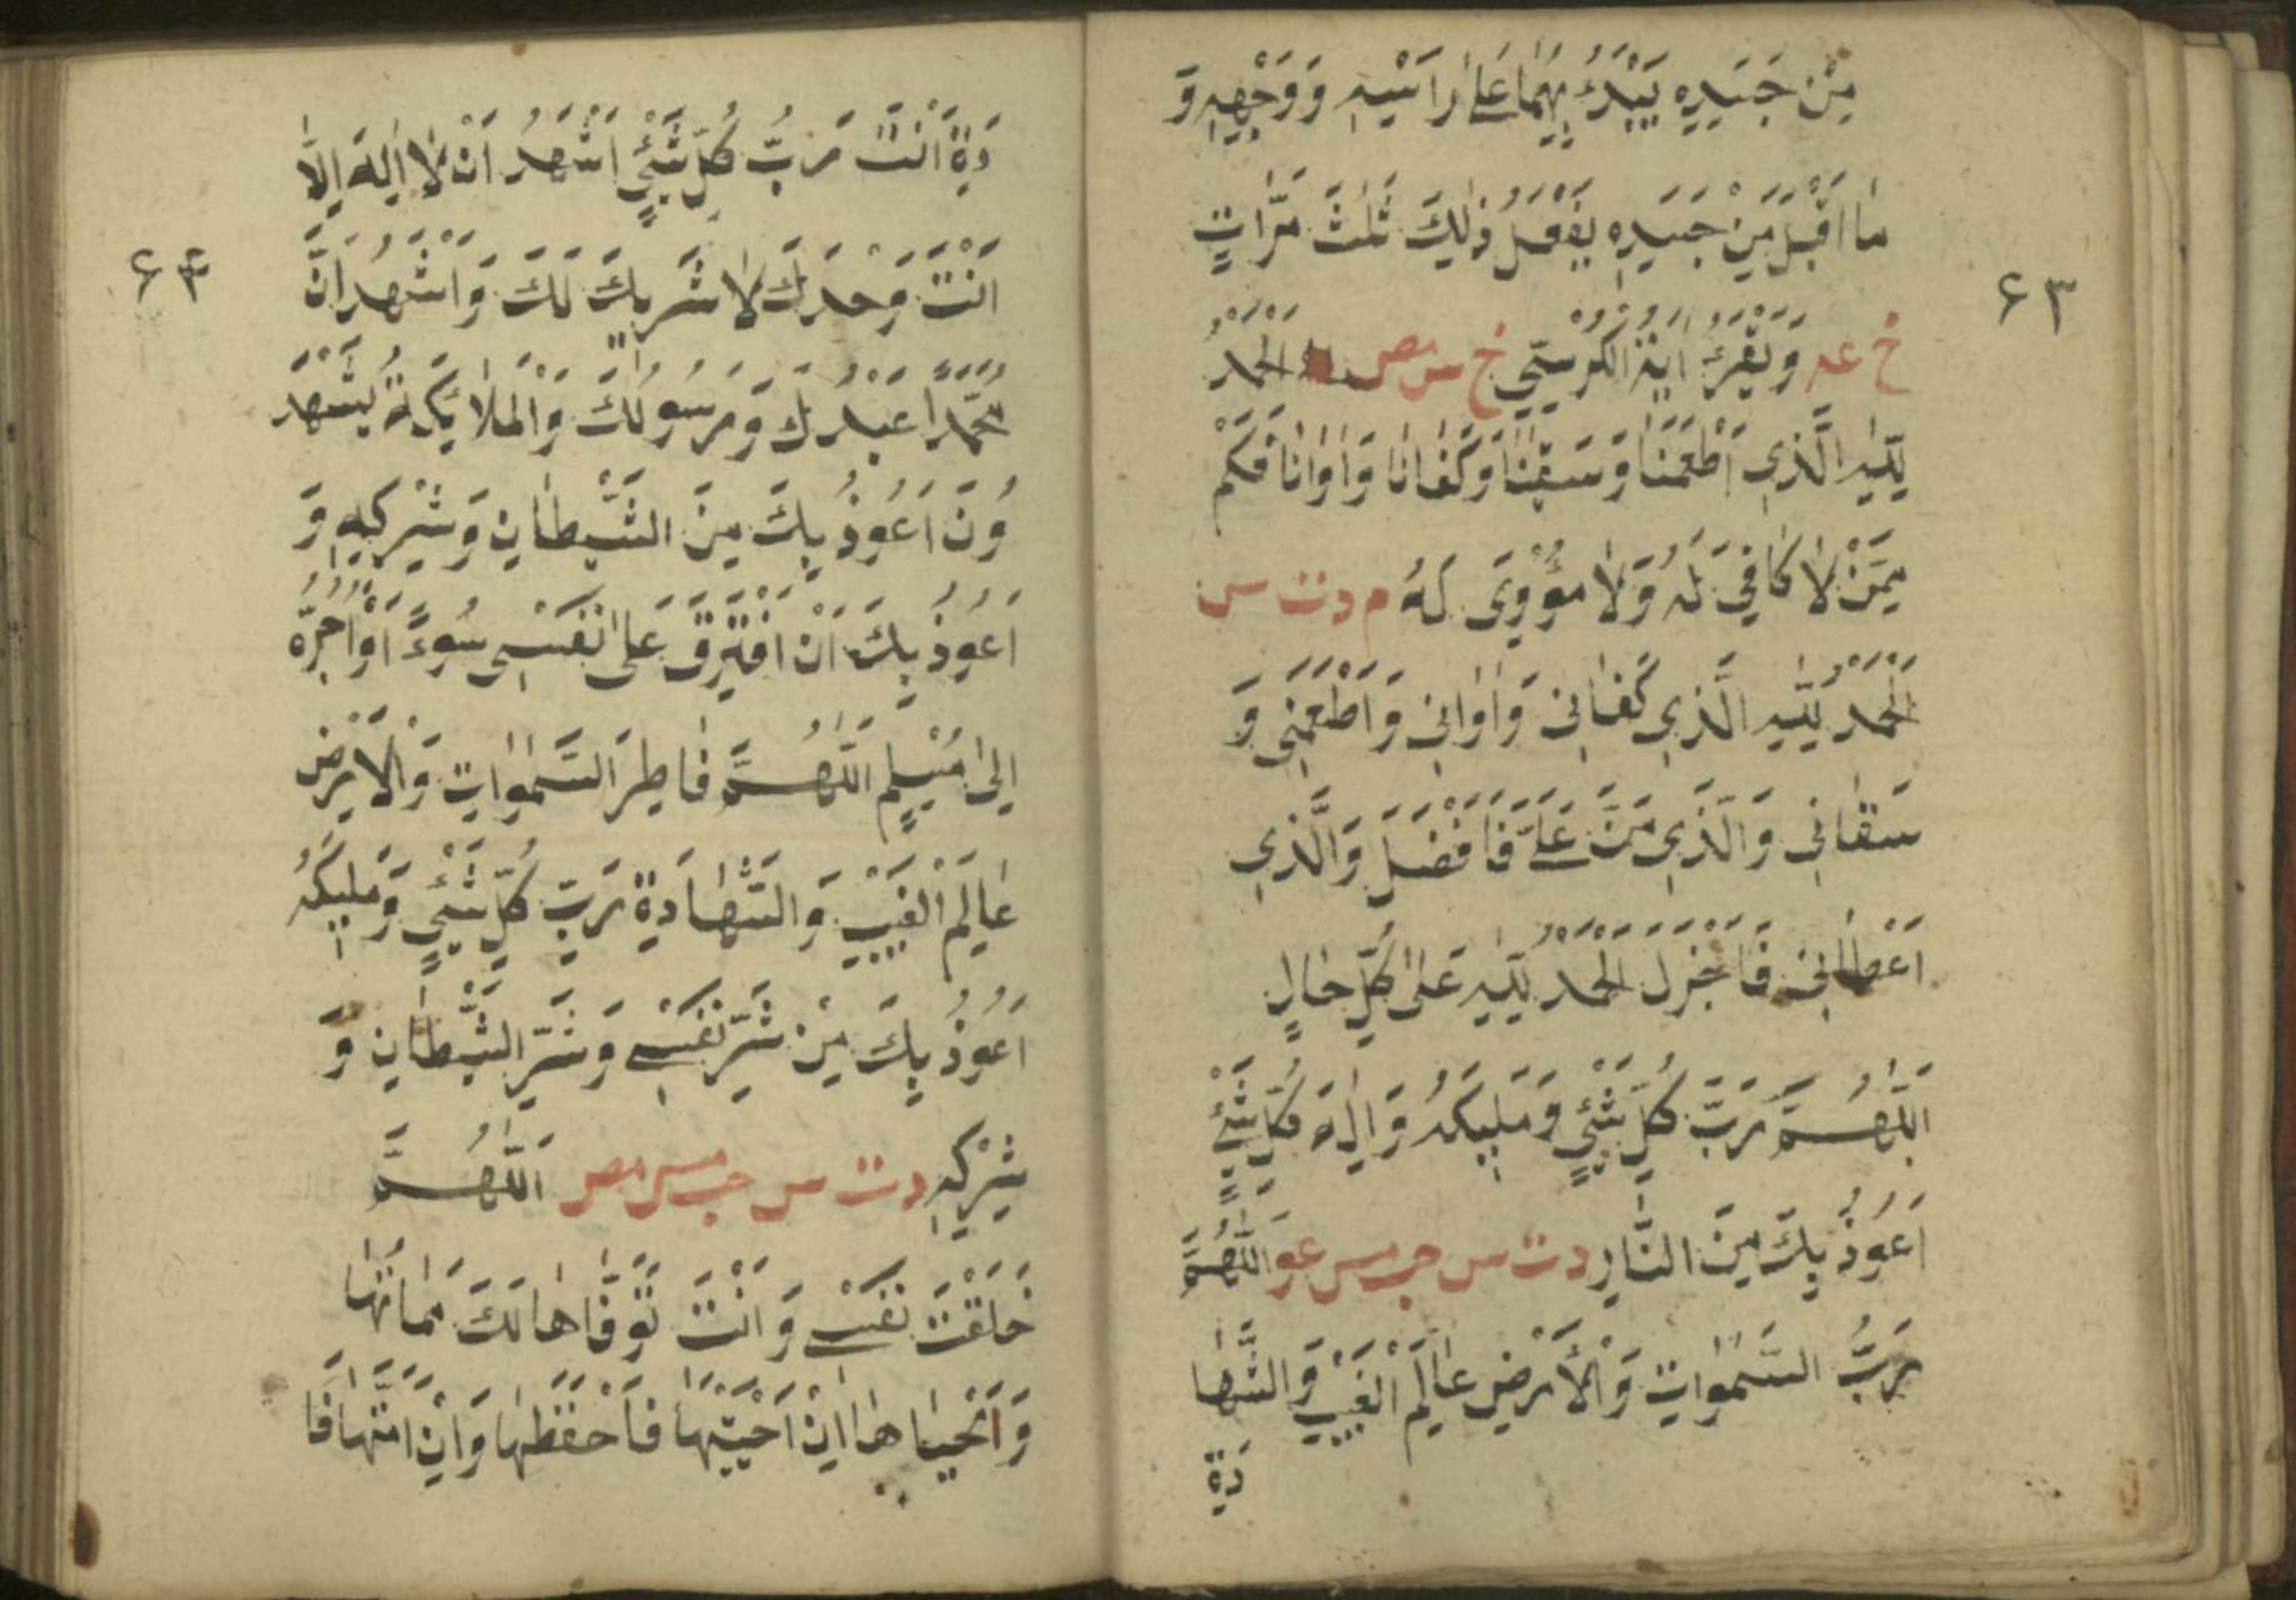 مِنْ جَسَدِهٖ يَبْدَءُ بِهِمَا عَلٰى رَاْسِهٖ وَوَجْهِهٖ وَ
مَا اَقْبَلَ مِنْ جَسَدِهٖ يَفْعَلُ ذٰلِكَ ثَلٰثَ مَرَّاتٍ
۶۳
خ عه وَيَقْرَءُ اٰيَةَ الْكُرْسِيِّ خ س مص اَلْحَمْدُ
لِلّٰهِ الَّذِي اَطْعَمَنَا وَسَقٰنَا وَكَفَانَا وَاٰوَانَا فَكَمْ
مِمَّنْ لَا كَافِيَ لَهُ وَلَا مُؤْوِىَ لَهُ م د ت س
اَلْحَمْدُ لِلّٰهِ الَّذِي كَفَانِي وَاٰوَانِي وَاَطْعَمَنِي وَ
سَقَانِي وَالَّذِي مَنَّ عَلَيَّ فَاَفْضَلَ وَالَّذِي
اَعْطَانِي فَاَجْزَلَ اَلْحَمْدُ لِلّٰهِ عَلٰى كُلِّ حَالٍ
اَللّٰهُمَّ رَبَّ كُلِّ شَيْءٍ وَمَلِيكَهُ وَاِلٰهَ كُلِّ شَيْءٍ
اَعُوذُ بِكَ مِنَ النَّارِ د ت س حب مس عو اَللّٰهُمَّ
رَبَّ السَّمٰوَاتِ وَالْاَرْضِ عَالِمَ الْغَيْبِ وَالشَّهَا
دَةِ
دَةِ اَنْتَ رَبُّ كُلِّ شَيْءٍ اَشْهَدُ اَنْ لَا اِلٰهَ اِلَّا
۶۴
اَنْتَ وَحْدَكَ لَا شَرِيكَ لَكَ وَاَشْهَدُ اَنَّ
مُحَمَّدًا عَبْدُكَ وَرَسُولُكَ وَالْمَلَائِكَةُ يَشْهَدُ
وْنَ اَعُوذُ بِكَ مِنَ الشَّيْطَانِ وَشِرْكِهٖ وَ
اَعُوذُ بِكَ اَنْ اَقْتَرِفَ عَلٰى نَفْسِى سُوءً اَوْ اَجُرَّهُ
اِلٰى مُسْلِمٍ اَللّٰهُمَّ فَاطِرَ السَّمٰوَاتِ وَالْاَرْضِ
عَالِمَ الْغَيْبِ وَالشَّهَادَةِ رَبَّ كُلِّ شَيْءٍ وَمَلِيكَهُ
اَعُوذُ بِكَ مِنْ شَرِّ نَفْسِي وَشَرِّ الشَّيْطَانِ وَ
شِرْكِهٖ د ت س حب مس مص اَللّٰهُمَّ
خَلَقْتَ نَفْسِي وَاَنْتَ تَوَفَّاهَا لَكَ مَمَاتُهَا
وَمَحْيَاهَا اِنْ اَحْيَيْتَهَا فَاحْفَظْهَا وَاِنْ اَمَتَّهَا فَا